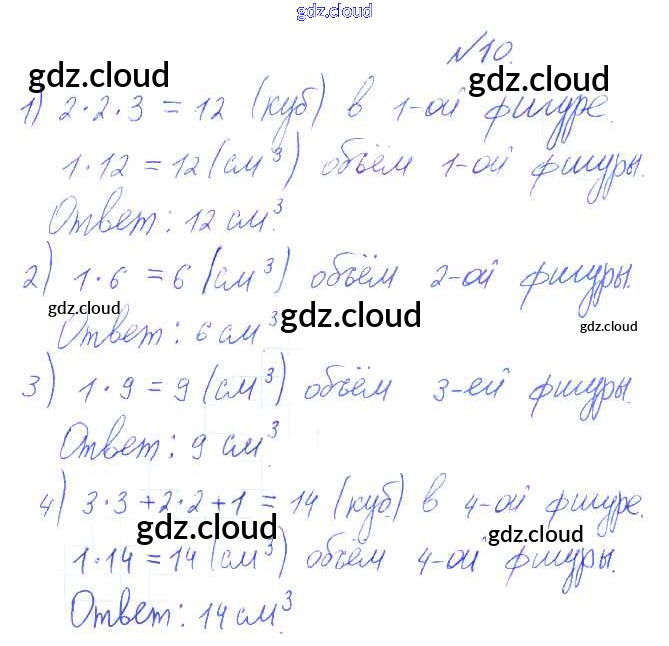 gdz.cloud
№10.
gdz.cloud gdz.cloud
1) 2·2·3 = 12 (куб) в 1-ой фигуре.
1·12 = 12 (см³) объём 1-ой фигуры.
Ответ: 12 см³.
2) 1·6 = 6 (см³) объём 2-ой фигуры.
gdz.cloud gdz.cloud gdz.cloud
Ответ: 6 см³
3) 1·9 = 9 (см³) объём 3-ей фигуры.
Ответ: 9 см³.
4) 3·3+2·2+1 = 14 (куб.) в 4-ой фигуре.
gdz.cloud gdz.cloud
1·14 = 14 (см³) объём 4-ой фигуры.
Ответ: 14 см³.